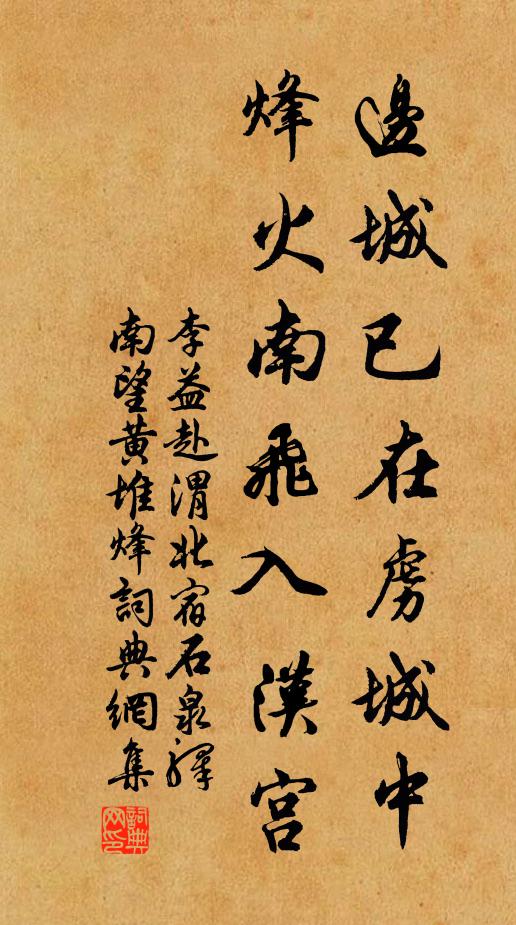 邊城已在虜城中
烽火南飛入漢宮
李益赴渭北宿石泉驛
南望黃堆烽詞典網集
詞典网印